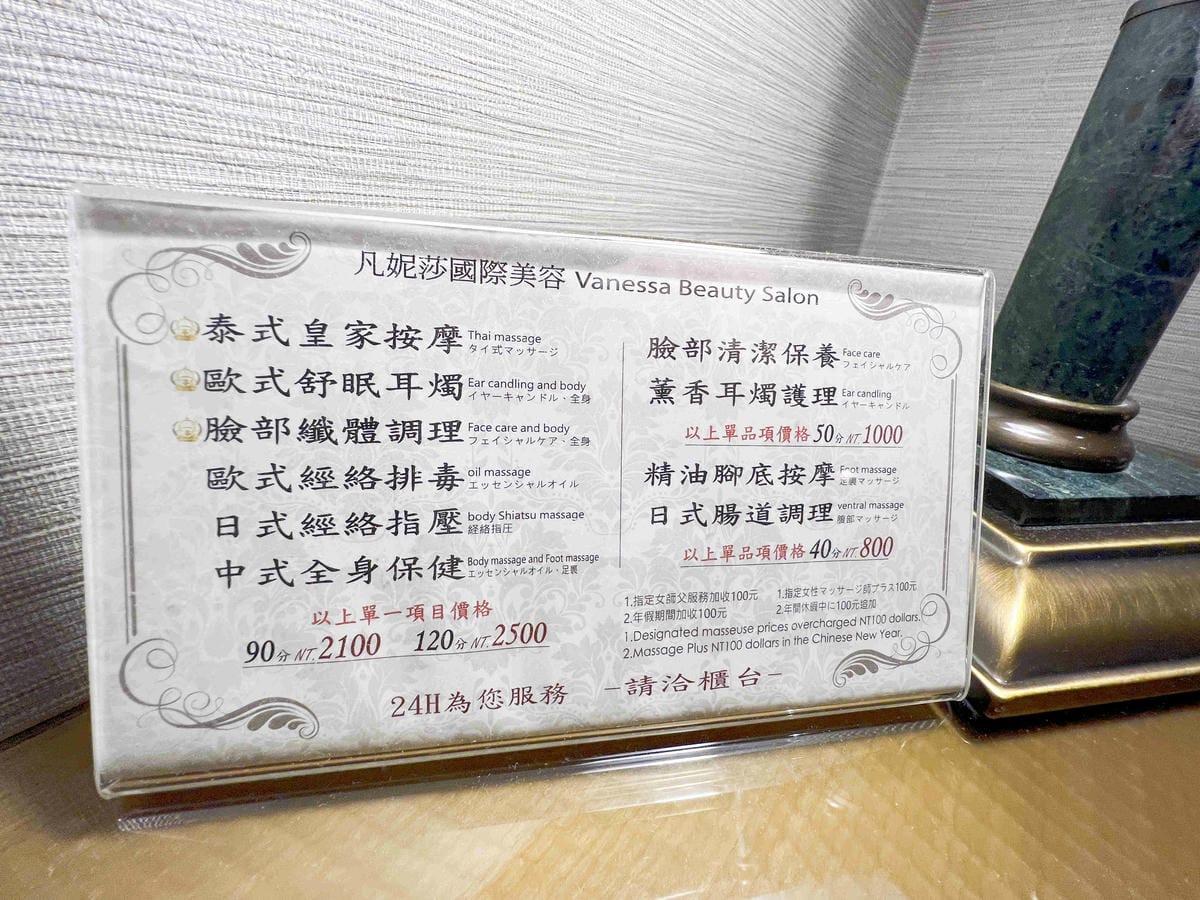 凡妮莎國際美容 Vanessa Beauty Salon
泰式皇家按摩 Thai massage
タイ式マッサージ
歐式舒眠耳燭 Ear candling and body
イヤーキャンドル、全身
臉部纖體調理 Face care and body
フェイシャルケア、全身
歐式經絡排毒 oil massage
エッセンシャルオイル
日式經絡指壓 body Shiatsu massage
経絡指圧
中式全身保健 Body massage and Foot massage
エッセンシャルオイル、足裏
以上單一項目價格
90分NT.2100 120分NT.2500
臉部清潔保養 Face care
フェイシャルケア
薰香耳燭護理 Ear candling
イヤーキャンドル
以上單品項價格50分NT.1000
精油腳底按摩 Foot massage
足裏マッサージ
日式腸道調理 ventral massage
腹部マッサージ
以上單品項價格40分NT.800
1.指定女師父服務加收100元
2.年假期間加收100元
1.指定女性マッサージ師プラス100元
2.年間休暇中に100元追加
1.Designated masseuse prices overcharged NT100 dollars.
2.Massage Plus NT100 dollars in the Chinese New Year.
24H為您服務 －請洽櫃台－